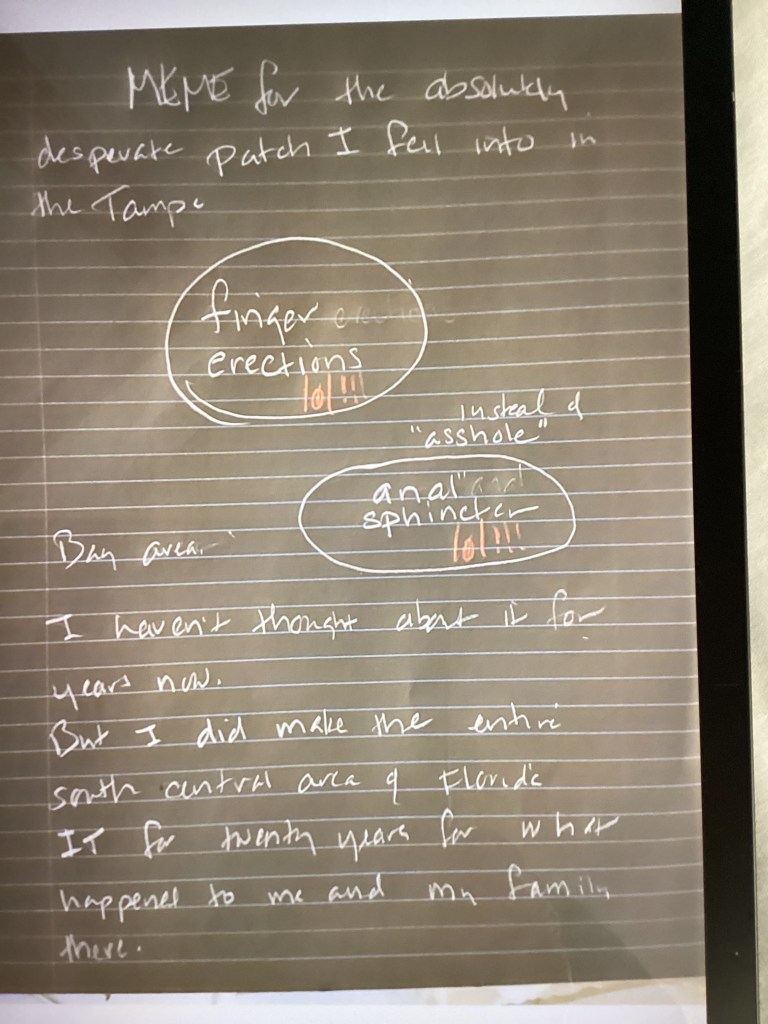 MEME for the absolutely
desperate patch I fell into in
the Tampa
finger
erections
lol!!!
instead of
"asshole"
anal
sphincter
lol!!!
Bay area.
I haven't thought about it for
years now.
But I did make the entire
south central area of Florida
IT for twenty years for what
happened to me and my family
there.